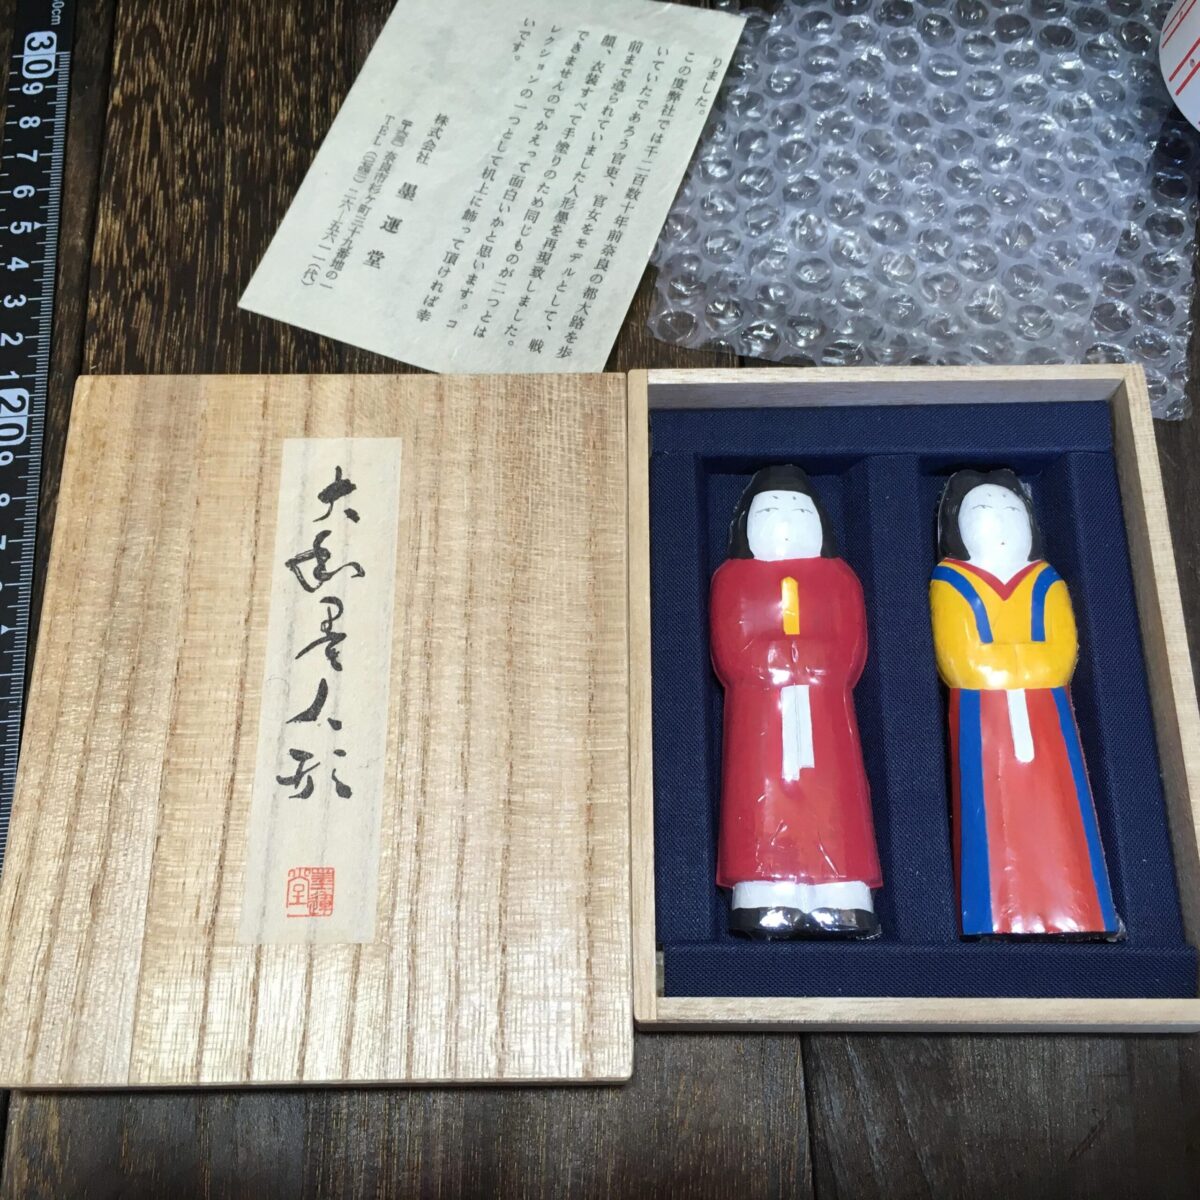 りました。
この度弊社では千二百数十年前奈良の都大路を歩
いていたであろう官吏、官女をモデルとして、戦
前まで造られていました人形墨を再現致しました。
顔、衣装すべて手塗りのため同じものが二つとは
できませんのでかえって面白いかと思います。コ
レクションの一つとして机上に飾って頂ければ幸
いです。
株式会社 墨運堂
奈良市杉ケ町三十九番地の一
TEL 二六—五六一一(代)
大和墨人形
墨運堂
30 9 8 7 6 5 4 3 2 1 20 9 8 7